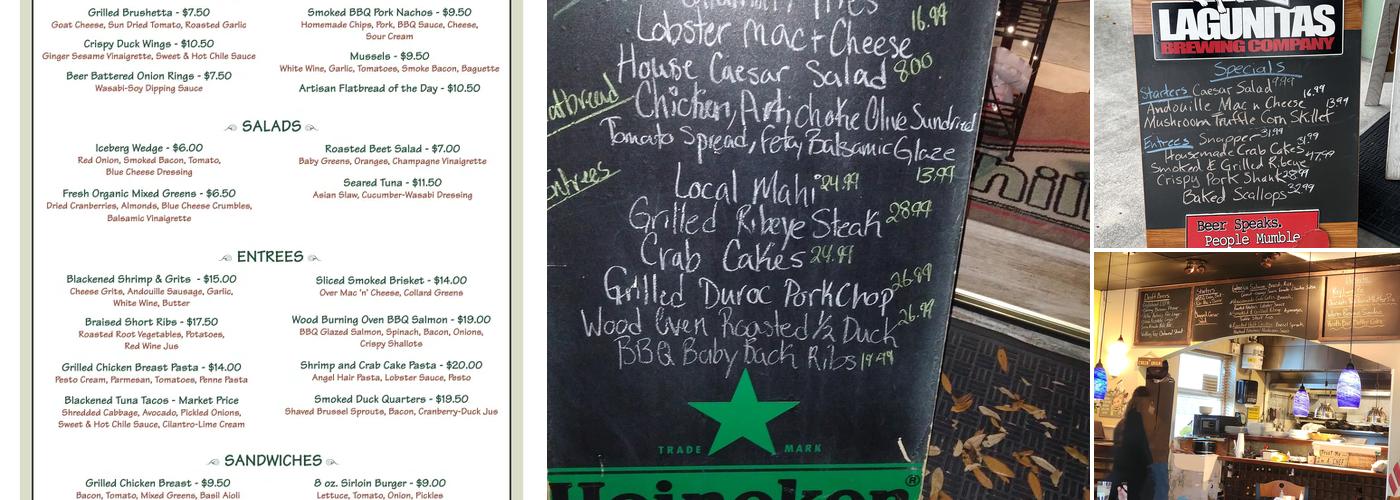 Grilled Brushetta - $7.50
Goat Cheese, Sun Dried Tomato, Roasted Garlic
Crispy Duck Wings - $10.50
Ginger Sesame Vinaigrette, Sweet & Hot Chile Sauce
Beer Battered Onion Rings - $7.50
Wasabi-Soy Dipping Sauce
Smoked BBQ Pork Nachos - $9.50
Homemade Chips, Pork, BBQ Sauce, Cheese,
Sour Cream
Mussels - $9.50
White Wine, Garlic, Tomatoes, Smoke Bacon, Baguette
Artisan Flatbread of the Day - $10.50
SALADS
Iceberg Wedge - $6.00
Red Onion, Smoked Bacon, Tomato,
Blue Cheese Dressing
Fresh Organic Mixed Greens - $6.50
Dried Cranberries, Almonds, Blue Cheese Crumbles,
Balsamic Vinaigrette
Roasted Beet Salad - $7.00
Baby Greens, Oranges, Champagne Vinaigrette
Seared Tuna - $11.50
Asian Slaw, Cucumber-Wasabi Dressing
ENTREES
Blackened Shrimp & Grits - $15.00
Cheese Grits, Andouille Sausage, Garlic,
White Wine, Butter
Braised Short Ribs - $17.50
Roasted Root Vegetables, Potatoes,
Red Wine Jus
Grilled Chicken Breast Pasta - $14.00
Pesto Cream, Parmesan, Tomatoes, Penne Pasta
Blackened Tuna Tacos - Market Price
Shredded Cabbage, Avocado, Pickled Onions,
Sweet & Hot Chile Sauce, Cilantro-Lime Cream
Sliced Smoked Brisket - $14.00
Over Mac 'n' Cheese, Collard Greens
Wood Burning Oven BBQ Salmon - $19.00
BBQ Glazed Salmon, Spinach, Bacon, Onions,
Crispy Shallots
Shrimp and Crab Cake Pasta - $20.00
Angel Hair Pasta, Lobster Sauce, Pesto
Smoked Duck Quarters - $19.50
Shaved Brussel Sprouts, Bacon, Cranberry-Duck Jus
SANDWICHES
Grilled Chicken Breast - $9.50
Bacon, Tomato, Mixed Greens, Basil Aioli
8 oz. Sirloin Burger - $9.00
Lettuce, Tomato, Onion, Pickles
Lobster Mac + Cheese 16.99
House Caesar Salad 8.00
Chicken, Artichoke Olive Sundried
Tomato Spread, Feta, Balsamic Glaze
13.99
Local Mahi 24.99
Grilled Ribeye Steak 28.99
Crab Cakes 24.99
Grilled Duroc Pork Chop 26.99
Wood Oven Roasted 1/2 Duck 26.99
BBQ Baby Back Ribs 19.99
TRADE MARK
Heineken®
LAGUNITAS
BREWING COMPANY
Specials
Starters Caesar Salad 9.99
Andouille Mac n Cheese 16.99
Mushroom Truffle Corn Skillet 13.99
Entrees Snapper 31.99
Housemade Crab Cakes 31.99
Smoked & Grilled Ribeye 47.99
Crispy Pork Shank 28.99
Baked Scallops 32.99
Beer Speaks.
People Mumble
Draft Beers
Starters